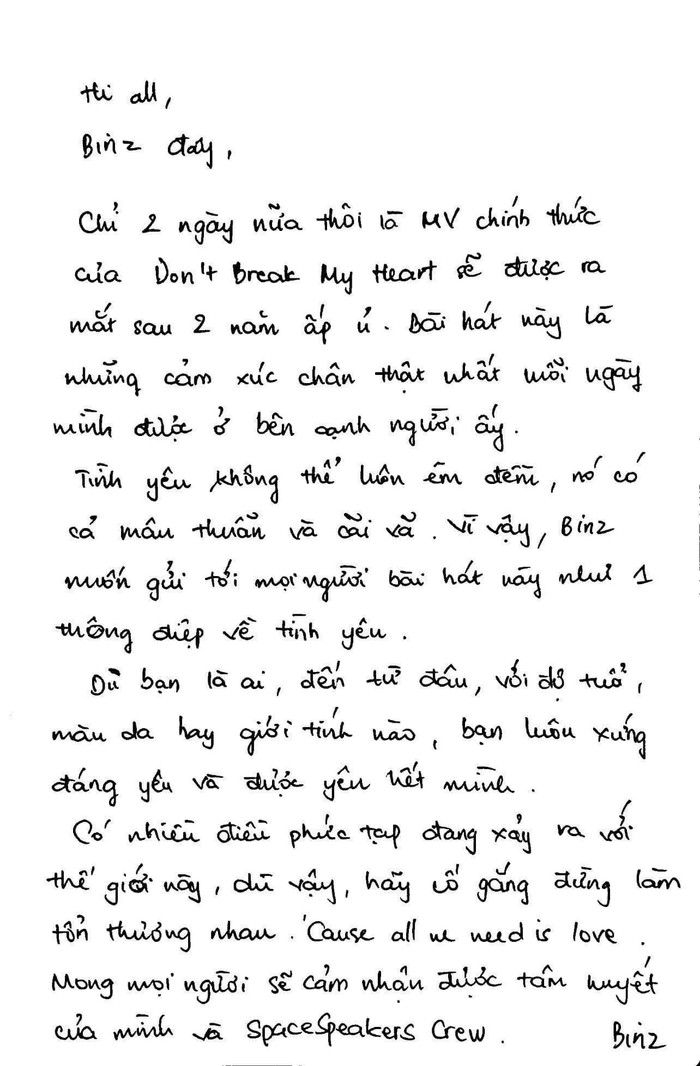 Hi all,
Binz đây,
Chỉ 2 ngày nữa thôi là MV chính thức
của Don't Break My Heart sẽ được ra
mắt sau 2 năm ấp ủ. Bài hát này là
những cảm xúc chân thật nhất mỗi ngày
mình được ở bên cạnh người ấy.
Tình yêu không thể luôn êm đềm, nó có
cả mâu thuẫn và cãi vã. Vì vậy, Binz
muốn gửi tới mọi người bài hát này như 1
thông điệp về tình yêu.
Dù bạn là ai, đến từ đâu, với độ tuổi,
màu da hay giới tính nào, bạn luôn xứng
đáng yêu và được yêu hết mình.
Có nhiều điều phức tạp đang xảy ra với
thế giới này, dù vậy, hãy cố gắng đừng làm
tổn thương nhau. 'Cause all we need is love.
Mong mọi người sẽ cảm nhận được tâm huyết
của mình và SpaceSpeakers Crew. Binz